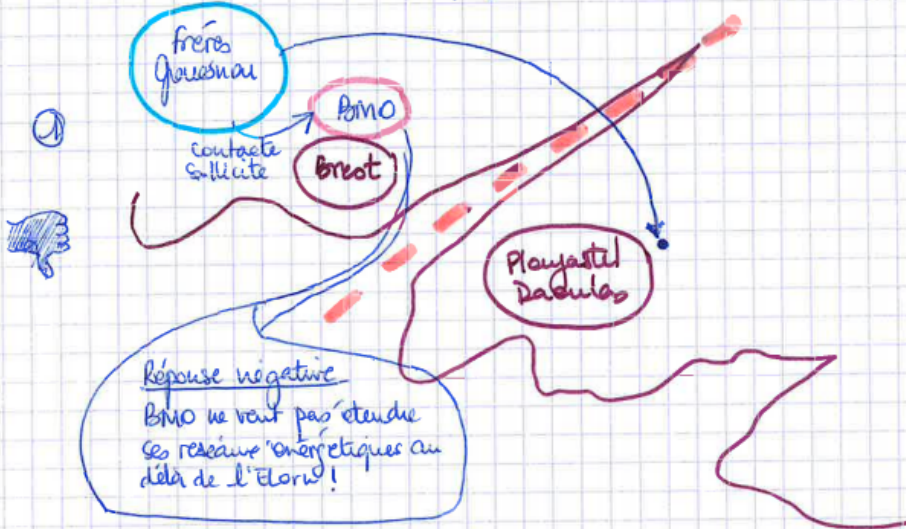 frères
Gouesnou
①
BMO
contacte
sollicite
Brest
Plougastel
Daoulas
Réponse négative
BMO ne veut pas étendre
ses réseaux énergétiques au
délà de l'Elorn !